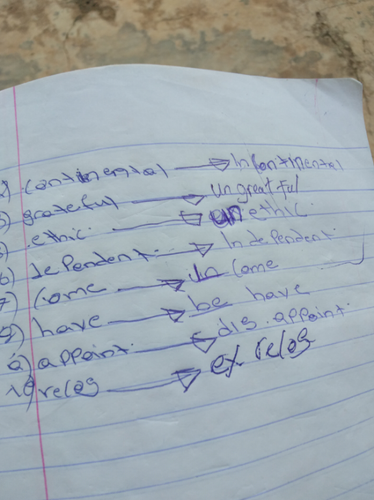 ) continental → Incontinental
) grateful → ungreatful
) ethic. → unethic.
6) dependent. → Independent.
7) Come → in Come
8) have → be have
9) appoint. → dis. appoint.
10) relog → ex. relog